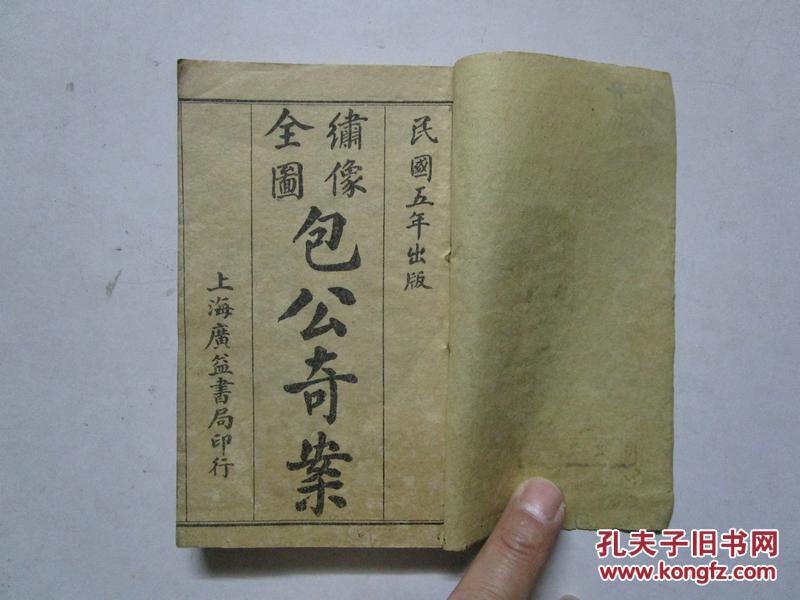 民國五年出版
繡像
全圖
包公奇案
上海廣益書局印行
孔夫子旧书网
www.kongfz.com